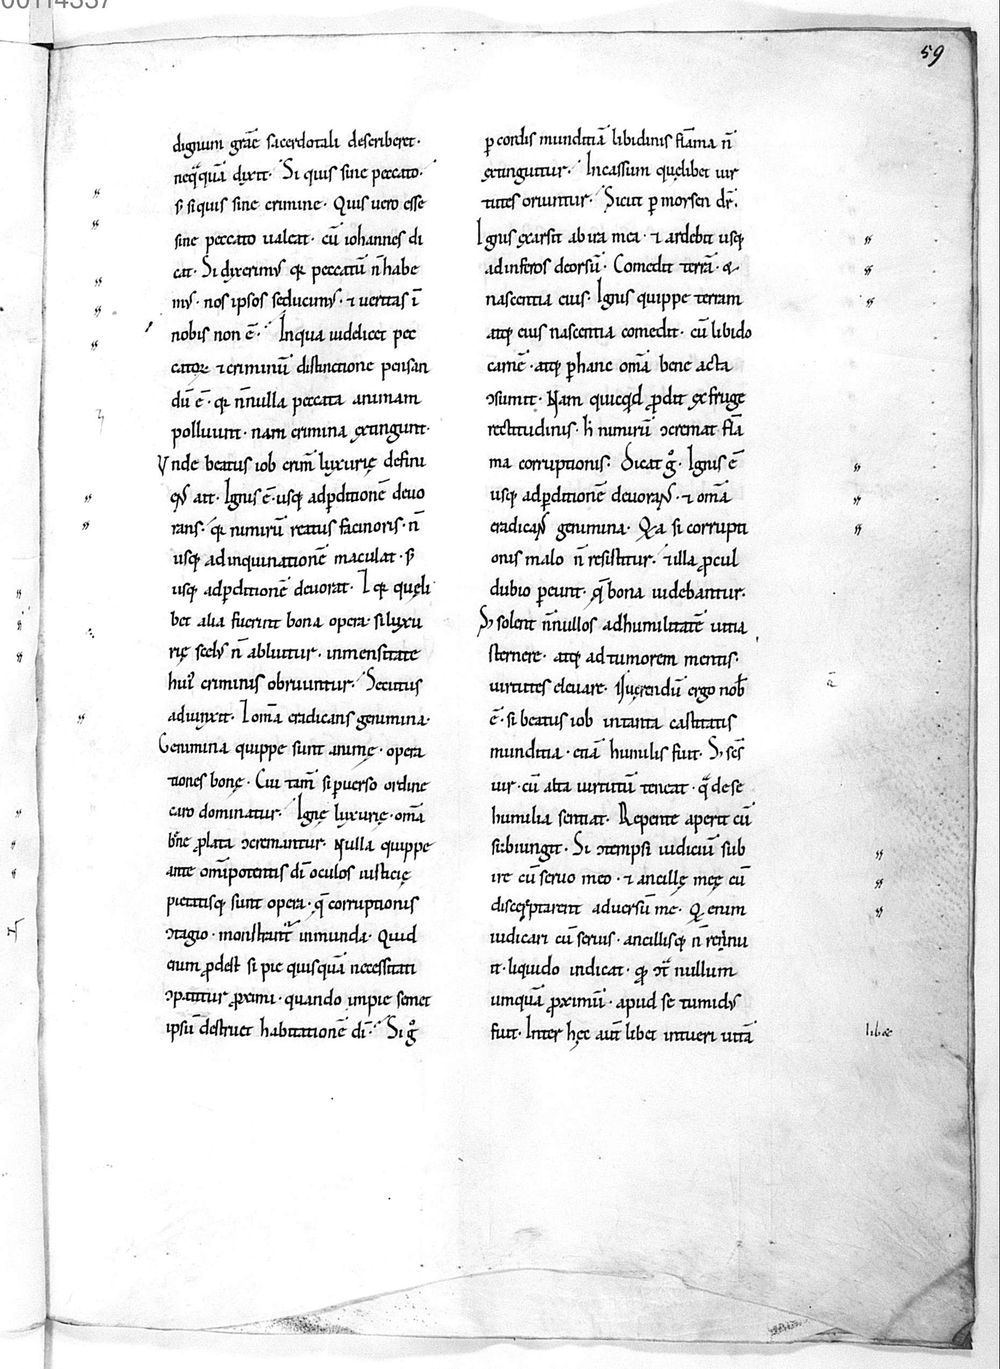 59
dignum grãe sacerdotali describeret·
neq̃quã dixit· Si quis sine peccato·
s̄ siquis sine crimine· Quis uero esse
sine peccato ualeat· cũ iohannes di
cat· Si dixerimꝰ qꝛ peccatũ ñ habe
mꝰ· nos ipsos seducimꝰ· ⁊ ueritas ĩ
nobis non ẽ· In qua uidelicet pec
catoꝝ ⁊ criminũ distinctione pensan
dũ ẽ· qꝛ ñnulla peccata animam
polluunt· nam crimina extingunt·
Vnde beatus iob crim̃ luxurię defini
ens ait· Ignis ẽ· usq; ad ꝑditionẽ deuo
rans· qꝛ nimirũ reatus facinoris· ñ
usq; ad inquinationẽ maculat· s̄
usq; ad ꝑditionẽ deuorat· Et qꝛ quęli
bet alia fuerint bona opera· si luxu
rię scelꝰ ñ abluitur· inmensitate
huiꝰ criminis obruuntur· Secutus
adiunxit· Et om̃a eradicans genimina·
Genimina quippe sunt animę· opera
tiones bonę· Cui tam̃ si ꝑuerso ordine
caro dominatur· Igne luxurię· om̃a
bñe ꝓlata ↄcremantur· Nulla quippe
ante om̃ipotentis dĩ oculos iusticię
pietatisq; sunt opera· q̃ corruptionis
ↄtagio· monstrant̃ inmunda· Quid
enim ꝓdest si pie quisquã necessitati
ↄpatitur ꝓximi· quando impie semet
ipsũ destruet habitationẽ dĩ· Si gͦ
ꝑ cordis munditiã libidinis flãma ñ
extinguitur· Incassum quęlibet uir
tutes oriuntur· Sicut ꝑ moysen dr̃·
Ignis exarsit ab ira mea· ⁊ ardebit usq;
ad inferos deorsũ· Comedit terrã· &
nascentia eius· Ignis quippe terram
atq; eius nascentia comedit· cũ libido
carnẽ· atq; ꝑ hanc om̃a bene acta
ↄsumit· Nam quicq̇d ꝓdit ex fruge
rectitudinis· h̄ nimirũ ↄcremat flã
ma corruptionis· Dicat gͦ· Ignis ẽ
usq; ad ꝑditionẽ deuorans· ⁊ om̃a
eradicans genimina· Qꝛa si corrupti
onis malo ñ resistitur· ⁊ illa ꝓcul
dubio ꝑeunt· q̃ bona uidebantur·
S; solent ñnullos ad humilitatẽ uitia
sternere· atq; ad tumorem mentis·
uirtutes eleuare· Inquęrendũ ergo nob̃
ẽ· si beatus iob in tanta castitatis
munditia· etiã humilis fuit· S; sc̃s
uir· cũ alta uirtutũ teneat· q̃ de se
humilia sentiat· Repente aperit cũ
subiungit· Si ↄtempsi iudiciũ sub
ire cũ seruo meo· ⁊ ancillę męę cũ
disceptarent aduersũ me· Q enim
iudicari cũ seruis· ancillisq; ñ rennu
it· liquido indicat· qꝛ ↄt̃ nullum
umquã ꝓximũ· apud se tumidꝰ
fuit· Inter hęc aut̃ libet intueri uitã
libæ